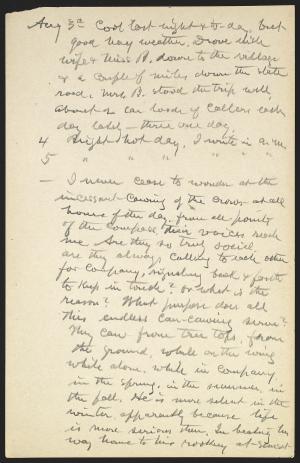 Aug 3d Cool last night & to-day, but
good hay weather. Drove with
wife & Miss B. down to the village
& a couple of miles down the state
road. Mrs B. stood the trip well,
About 2 car loads of callers each
day lately — three one day.
4 Bright hot day, I write in a.m.
5 " " " " " "
— I never cease to wonder at the
incessant cawing of the crows at all
hours of the day, from all points
of the compass, their voices reach
me. Are they so truly social,
are they always calling to each other
for company, signaling back & forth
to keep in touch? or what is the
reason? What purpose does all
this endless caw-cawing serve?
They caw from tree tops, from
the ground, while on the wing
while alone, while in company,
in the spring, in the summer, in
the fall. He is more silent in the
winter, apparently because life
is more serious then. In beating his
way home to his rookery at sunset